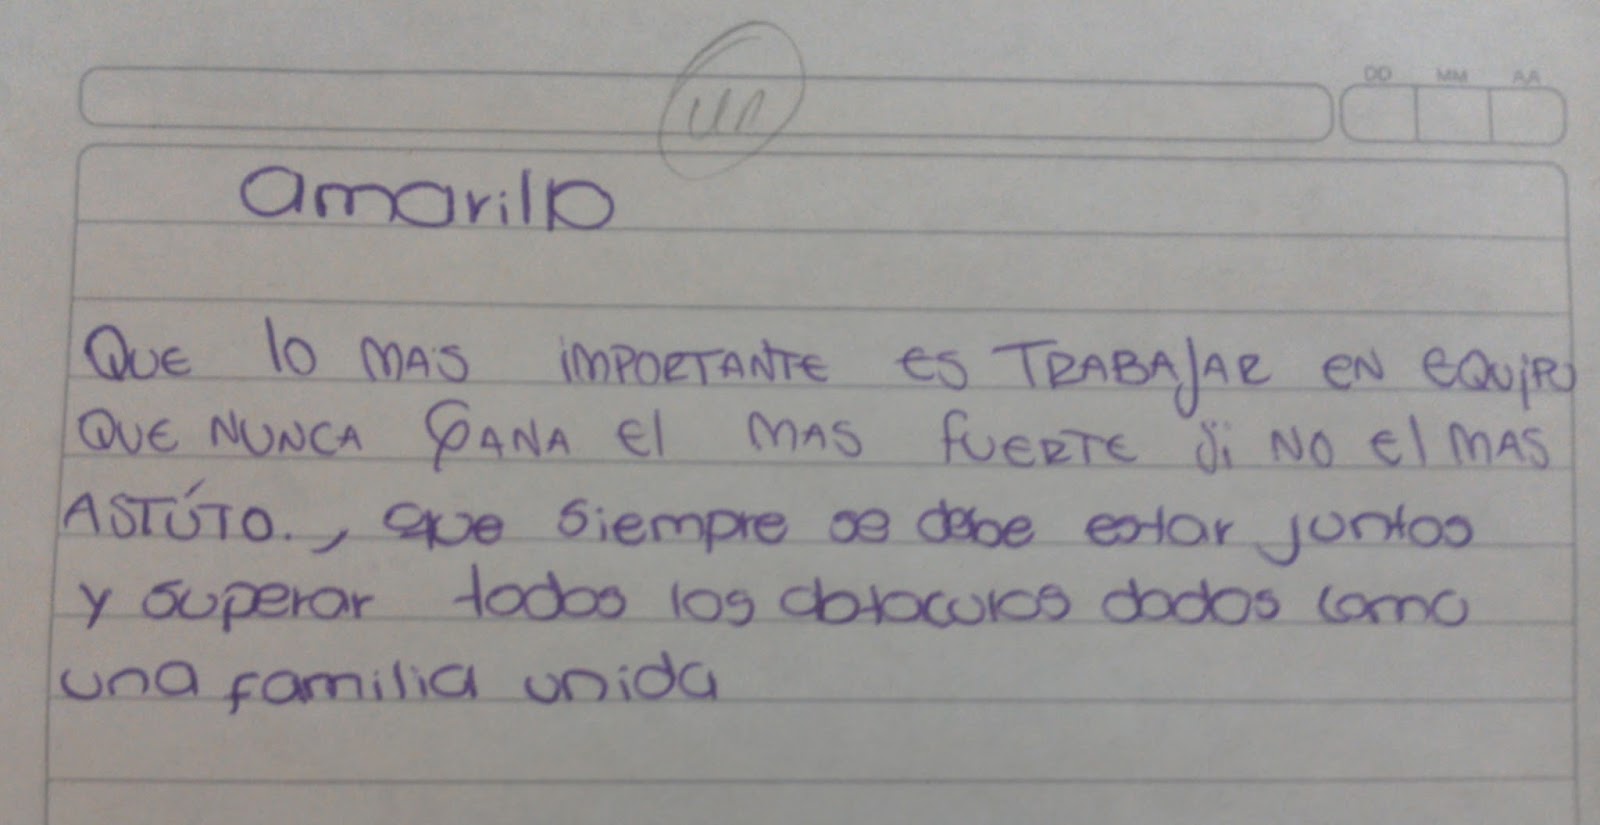 DD MM AA
amarillo
QUE lo MAS iMPORTANTE es TRABAJAR EN EQUiPO
QUE NUNCA GANA El MAS fUERTE Si NO El MAS
ASTÚTO., que siempre se debe estar juntos
y superar todos los dados como
una familia unida